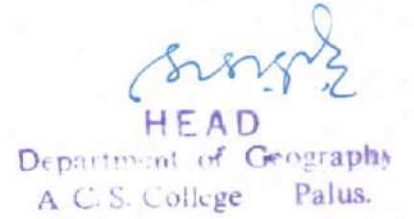 HEAD
Department of Geography
A. C. S. College Palus.